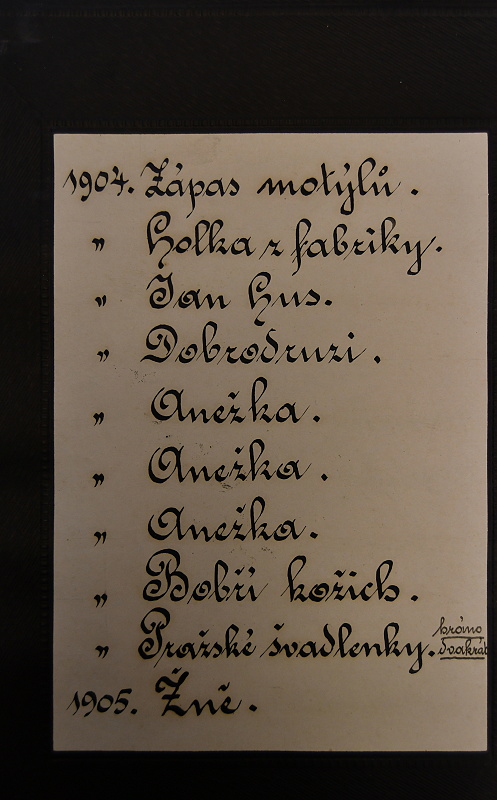 1904. Zápas motýlů.
„ Holka z fabriky.
„ Jan Hus.
„ Dobrodruzi.
„ Anežka.
„ Anežka.
„ Anežka.
„ Bobří kožich.
„ Pražské švadlenky. hráno dvakrát
1905. Žně.